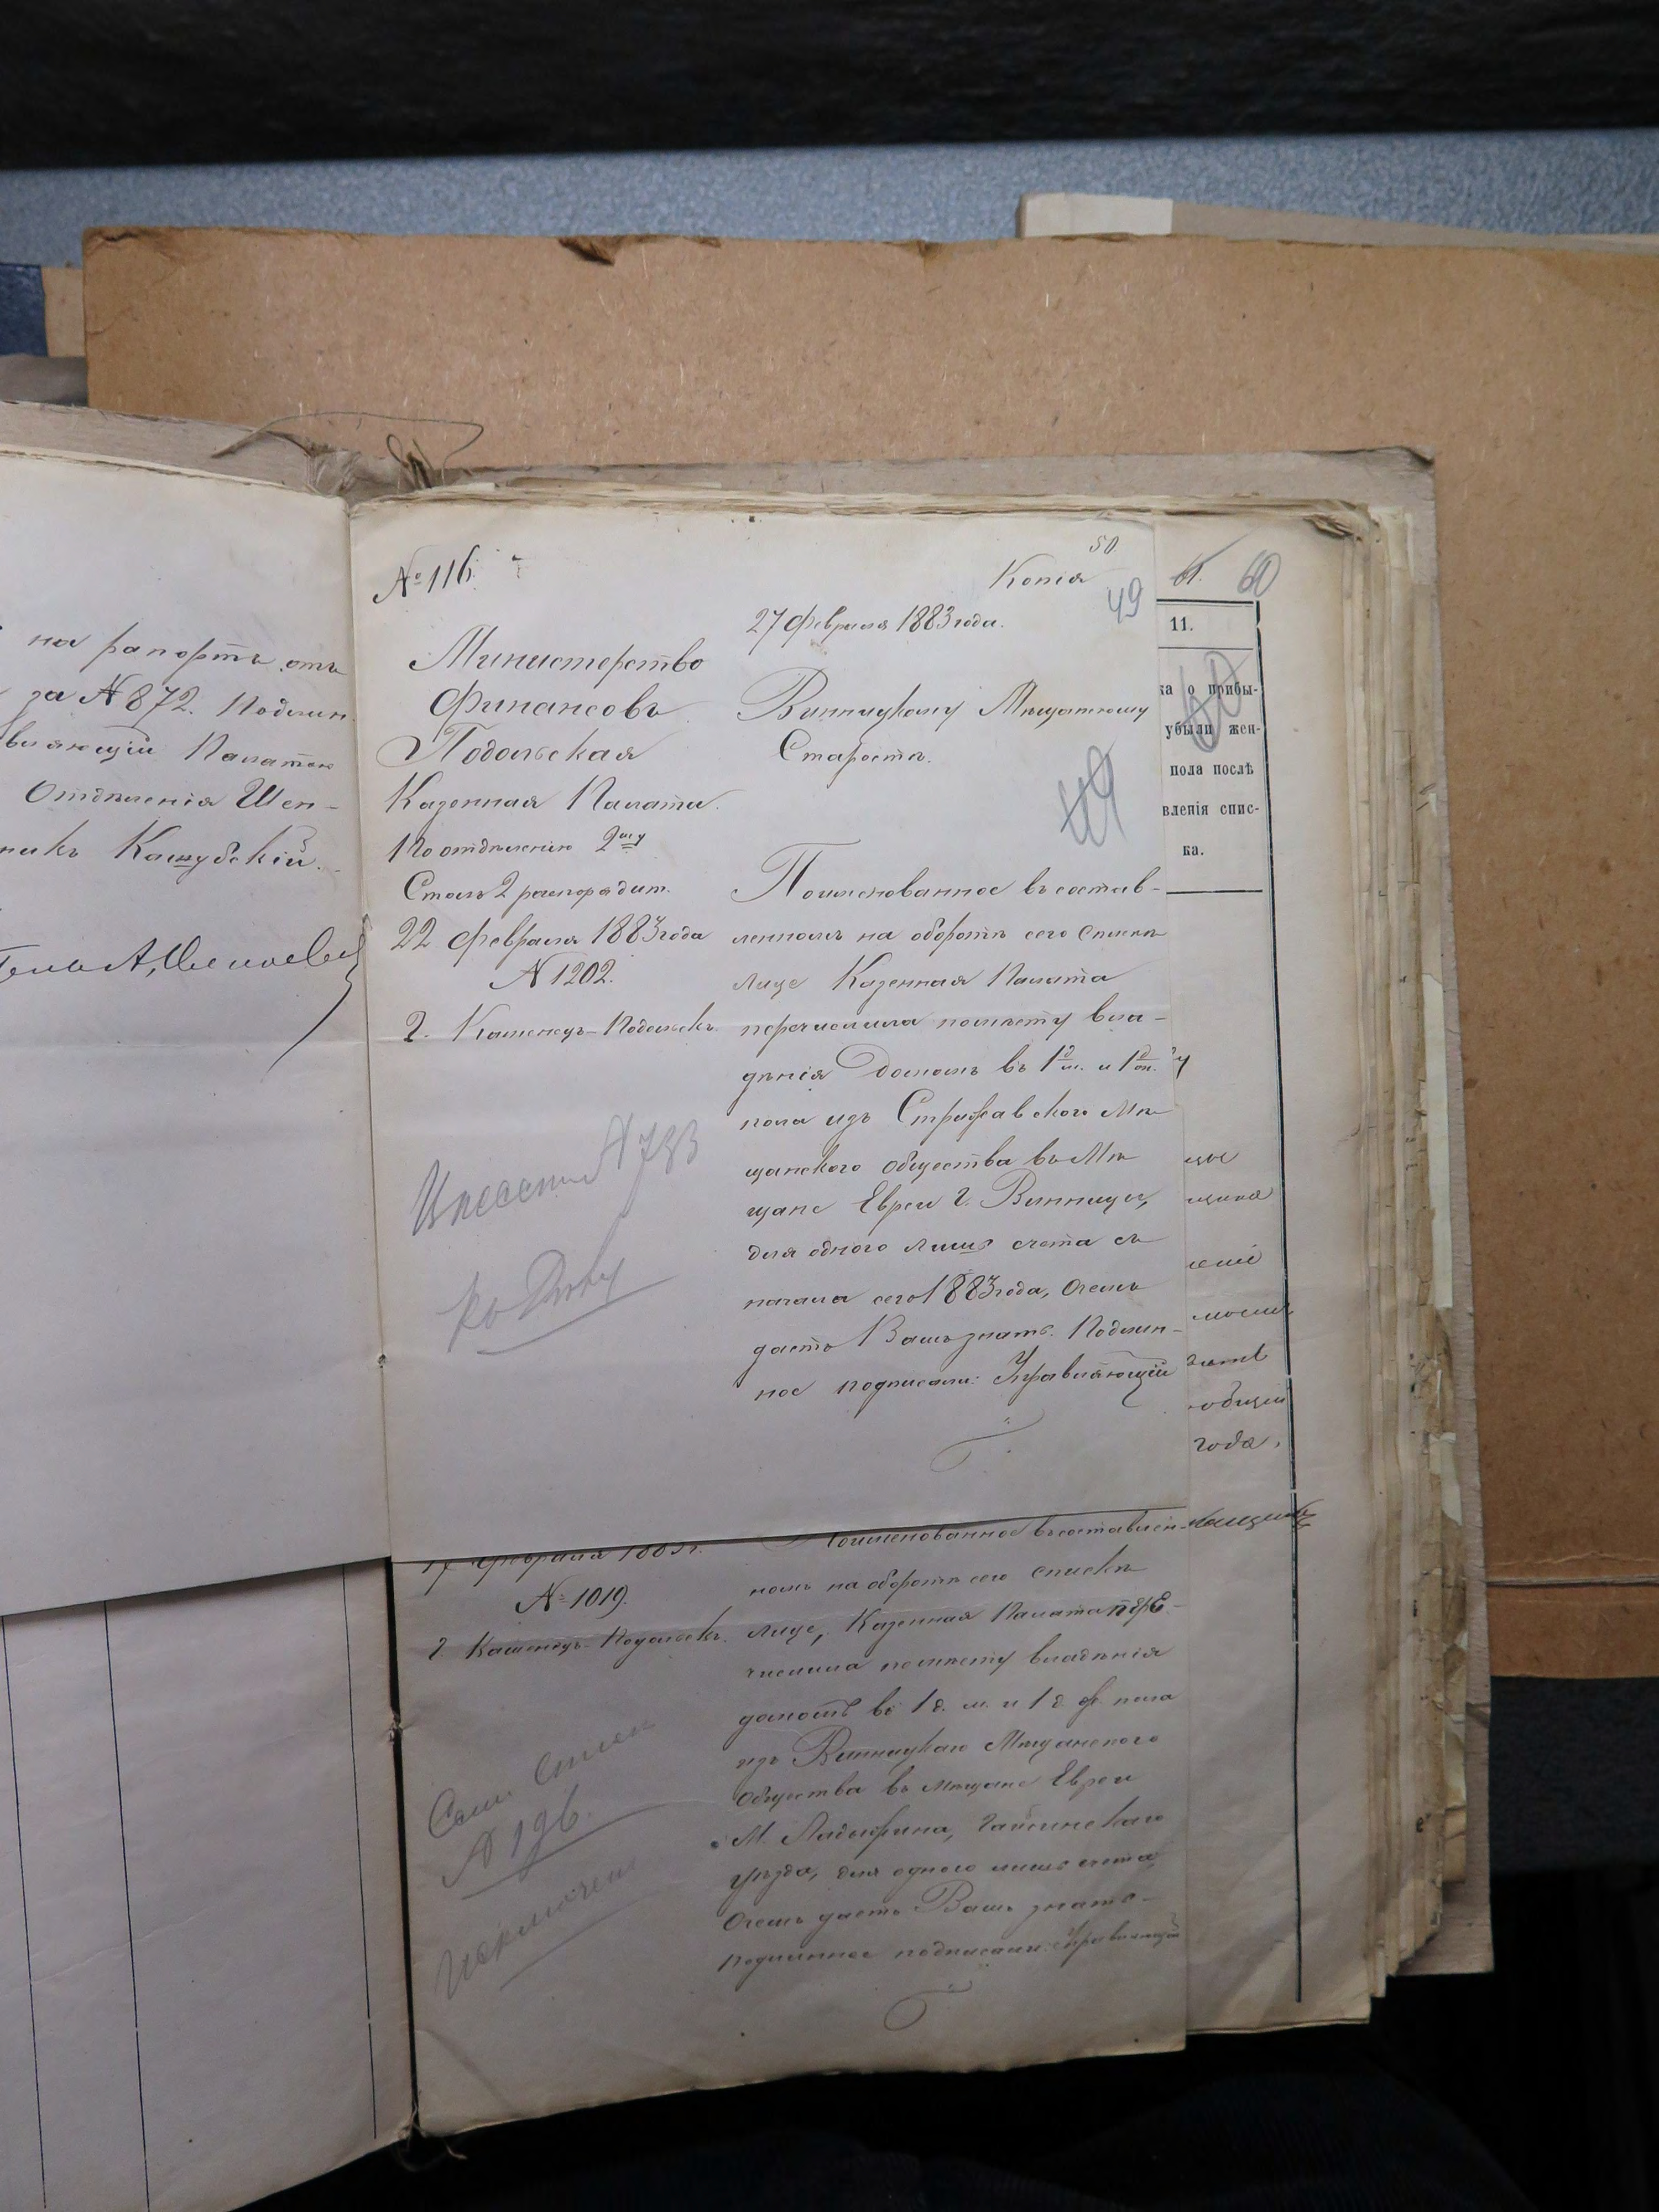 на рапортъ отъ
за №872. Подлин.
вляющій Палатою
Отдѣленія Шен-
никъ Кашубскій.
№ 116.
50
Копія
49
27 февраля 1883 года.
Министерство
Финансовъ
Подольская
Казенная Палата.
По отдѣленію 2му
Столъ 2 распорядит.
22 февраля 1883 года
№ 1202.
г. Каменецъ-Подольскъ.
Винницкому Мѣщанскому
Старостѣ.
49
Поименованное въ состав-
ленномъ на оборотѣ сего спискѣ
лице Казенная Палата
перечислила по мѣсту вла-
дѣнія домомъ въ 1 д. м. и 1 д. ж.
пола изъ Стрижавского Мѣ
щанского общества въ Мѣ
щане Евреи г. Винницы,
для одного лишь счета съ
начала сего 1883 года, о чемъ
даетъ Вамъ знать. Подлин-
ное подписали: Управляющій
№ 783
къ дѣлу
61. 60
11.
ка о прибы-
убыли жен-
пола послѣ
вленія спис-
ка.
60
года.
17 февраля 1883 г.
№ 1019.
г. Каменецъ-Подольскъ.
Поименованное въ составлен-
номъ на оборотѣ сего спискѣ
лице, Казенная Палата пере-
числила по мѣсту владѣнія
домомъ въ 1 д. м. и 1 д. ж. пола
изъ Винницкаго Мѣщанского
Общества въ мѣщане Евреи
М. Ладыжина, Гайсинскаго
уѣзда, для одного лишь счета,
о чемъ даетъ Вамъ знать.-
Подлинное подписали: Управляющій
№ 196.
Исключенъ